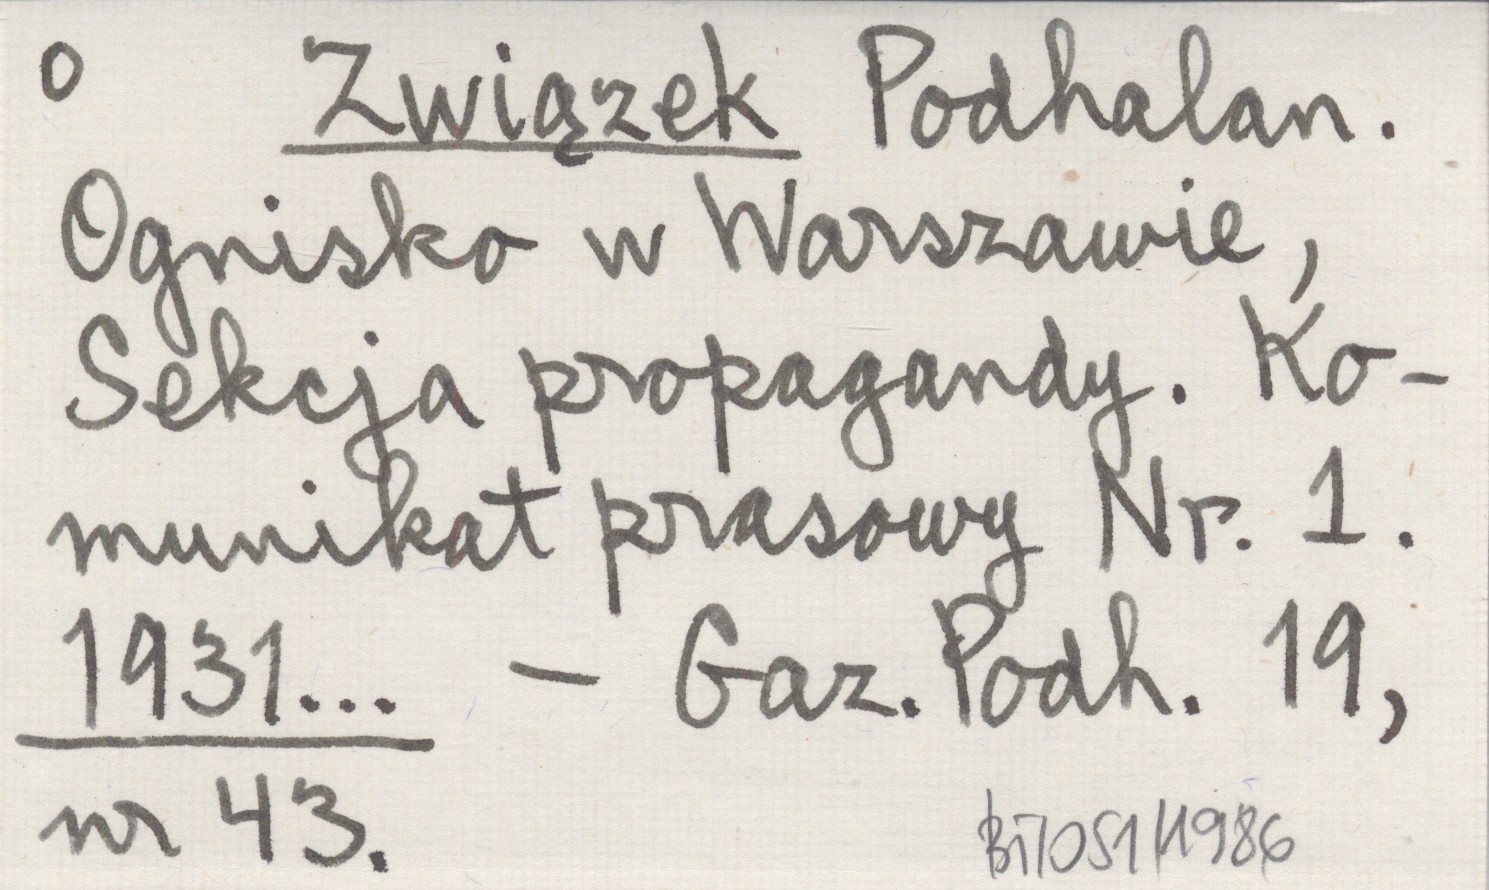 o Związek Podhalan.
Ognisko w Warszawie,
Sekcja propagandy. Ko-
munikat prasowy Nr. 1.
1931... - Gaz. Podh. 19,
nr 43.